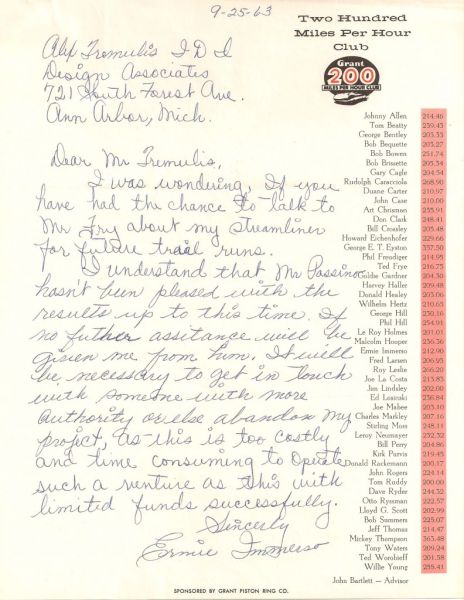 9-25-63
Two Hundred
Miles Per Hour
Club
Grant
200
MILES PER HOUR CLUB
Alex Tremulis I D I
Design Associates
721 South Forest Ave.
Ann Arbor, Mich.
Dear Mr Tremulis,
I was wondering, If you
have had the chance to talk to
Mr Fry about my streamliner
for future trail runs.
I understand that Mr Passino
hasn't been pleased with the
results up to this time. If
no futher assitance will be
given me from him. It will
be necessary to get in touch
with someone with more
authority or else abandon my
project, as this is too costly
and time consuming to operate
such a venture as this with
limited funds successfully.
Sincerly
Ermie Immerso
Johnny Allen 214.46
Tom Beatty 239.43
George Bentley 203.33
Bob Bequette 203.27
Bob Bowen 251.74
Bob Brissette 203.34
Gary Cagle 204.54
Rudolph Caracciola 268.90
Duane Carter 210.97
John Case 210.00
Art Chrisman 235.91
Don Clark 248.41
Bill Crosley 205.48
Howard Eichenhofer 229.66
George E. T. Eyston 357.50
Phil Freudiger 214.95
Ted Frye 216.75
Goldie Gardner 204.30
Harvey Haller 209.48
Donald Healey 203.06
Wilhelm Hertz 210.63
George Hill 230.16
Phil Hill 254.91
Le Roy Holmes 201.01
Malcolm Hooper 236.36
Ermie Immerso 212.90
Fred Larsen 206.93
Roy Leslie 266.20
Joe La Costa 213.83
Jim Lindsley 202.00
Ed Losinski 236.84
Joe Mabee 203.10
Charles Markley 207.16
Stirling Moss 248.11
Leroy Neumayer 232.32
Bill Perry 204.86
Kirk Parvis 219.45
Donald Rackemann 200.17
John Rogers 224.14
Tom Ruddy 200.00
Dave Ryder 244.32
Otto Ryssman 222.57
Lloyd G. Scott 202.99
Bob Summers 225.07
Jeff Thomas 214.47
Mickey Thompson 363.48
Tony Waters 209.24
Ted Worobieff 201.58
Willie Young 255.41
John Bartlett — Advisor
SPONSORED BY GRANT PISTON RING CO.